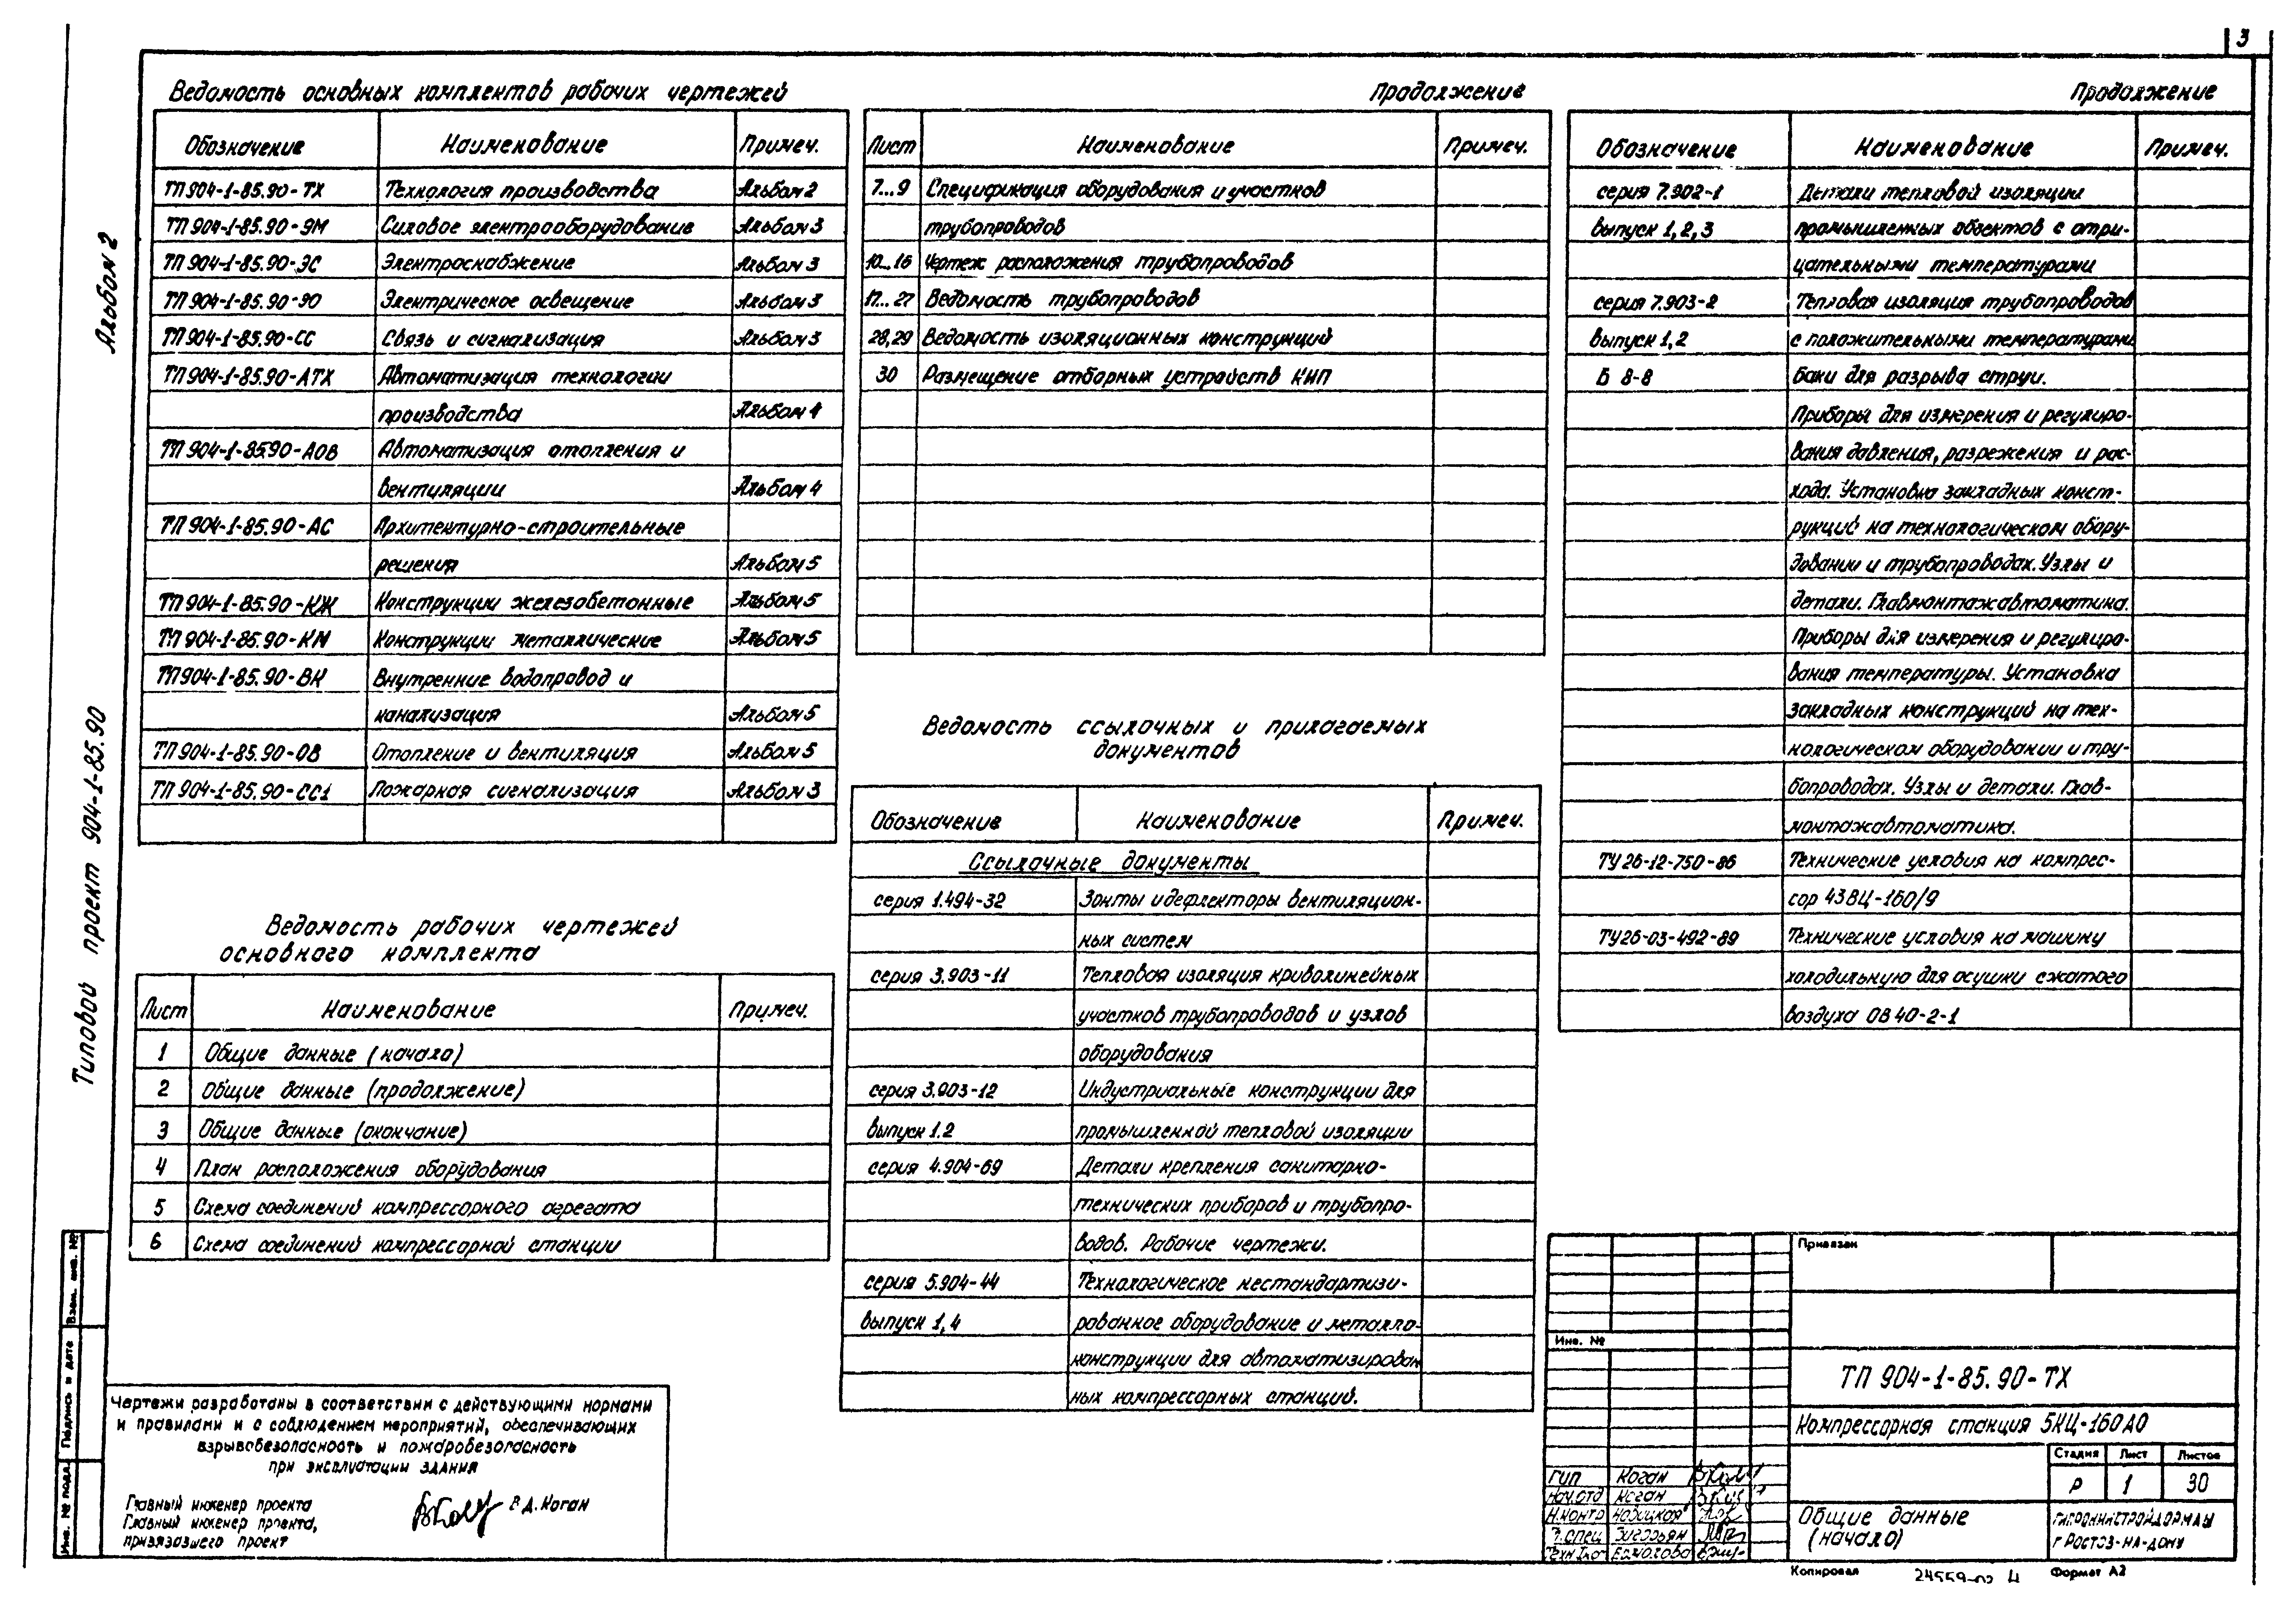 3
Альбом 2
Типовой проект 904-1-85.90
Ведомость основных комплектов рабочих чертежей
Обозначение Наименование Примеч.
ТП 904-1-85.90-ТХ Технология производства Альбом 2
ТП 904-1-85.90-ЭМ Силовое электрооборудование Альбом 3
ТП 904-1-85.90-ЭС Электроснабжение Альбом 3
ТП 904-1-85.90-ЭО Электрическое освещение Альбом 3
ТП 904-1-85.90-СС Связь и сигнализация Альбом 3
ТП 904-1-85.90-АТХ Автоматизация технологии
производства Альбом 4
ТП 904-1-85.90-АОВ Автоматизация отопления и
вентиляции Альбом 4
ТП 904-1-85.90-АС Архитектурно-строительные
решения Альбом 5
ТП 904-1-85.90-КЖ Конструкции железобетонные Альбом 5
ТП 904-1-85.90-КМ Конструкции металлические Альбом 5
ТП 904-1-85.90-ВК Внутренние водопровод и
канализация Альбом 5
ТП 904-1-85.90-ОВ Отопление и вентиляция Альбом 5
ТП 904-1-85.90-СС1 Пожарная сигнализация Альбом 3
Ведомость рабочих чертежей
основного комплекта
Лист Наименование Примеч.
1 Общие данные (начало)
2 Общие данные (продолжение)
3 Общие данные (окончание)
4 План расположения оборудования
5 Схема соединений компрессорного агрегата
6 Схема соединений компрессорной станции
Чертежи разработаны в соответствии с действующими нормами
и правилами и с соблюдением мероприятий, обеспечивающих
взрывобезопасность и пожаробезопасность
при эксплуатации здания
Главный инженер проекта В.Д. Коган
Главный инженер проекта,
привязавшего проект
Продолжение
Лист Наименование Примеч.
7...9 Спецификация оборудования и участков
трубопроводов
10...16 Чертеж расположения трубопроводов
17...27 Ведомость трубопроводов
28,29 Ведомость изоляционных конструкций
30 Размещение отборных устройств КИП
Ведомость ссылочных и прилагаемых
документов
Обозначение Наименование Примеч.
Ссылочные документы
серия 1.494-32 Зонты и дефлекторы вентиляцион-
ных систем
серия 3.903-11 Тепловая изоляция криволинейных
участков трубопроводов и узлов
оборудования
серия 3.903-12 Индустриальные конструкции для
выпуск 1.2 промышленной тепловой изоляции
серия 4.904-69 Детали крепления санитарно-
технических приборов и трубопро-
водов. Рабочие чертежи.
серия 5.904-44 Технологическое нестандартизи-
выпуск 1,4 рованное оборудование и металло-
конструкции для автоматизирован
ных компрессорных станций.
Продолжение
Обозначение Наименование Примеч.
серия 7.902-1 Детали тепловой изоляции
выпуск 1,2,3 промышленных объектов с отри-
цательными температурами
серия 7.903-2 Тепловая изоляция трубопроводов
выпуск 1,2 с положительными температурами
Б 8-8 Баки для разрыва струи.
Приборы для измерения и регулиро-
вания давления, разрежения и рас-
хода. Установка закладных конст-
рукций на технологическом обору-
довании и трубопроводах. Узлы и
детали. Главмонтажавтоматика.
Приборы для измерения и регулиро-
вания температуры. Установка
закладных конструкций на тех-
нологическом оборудовании и тру-
бопроводах. Узлы и детали. Глав-
монтажавтоматика.
ТУ 26-12-750-86 Технические условия на компрес-
сор 43ВЦ-160/9
ТУ26-03-492-89 Технические условия на машину
холодильную для осушки сжатого
воздуха ОВ 40-2-1
Привязан
Инв. №
ТП 904-1-85.90-ТХ
Компрессорная станция 5КЦ-160А0
Стадия Лист Листов
Р 1 30
Общие данные
(начало)
г Ростов-на-Дону
ГИП Коган
Нач.отд Коган
Н.контр
Копировал 24559-02 4 Формат А2
Взам. инв. №
Подпись и дата
Инв. № подл.